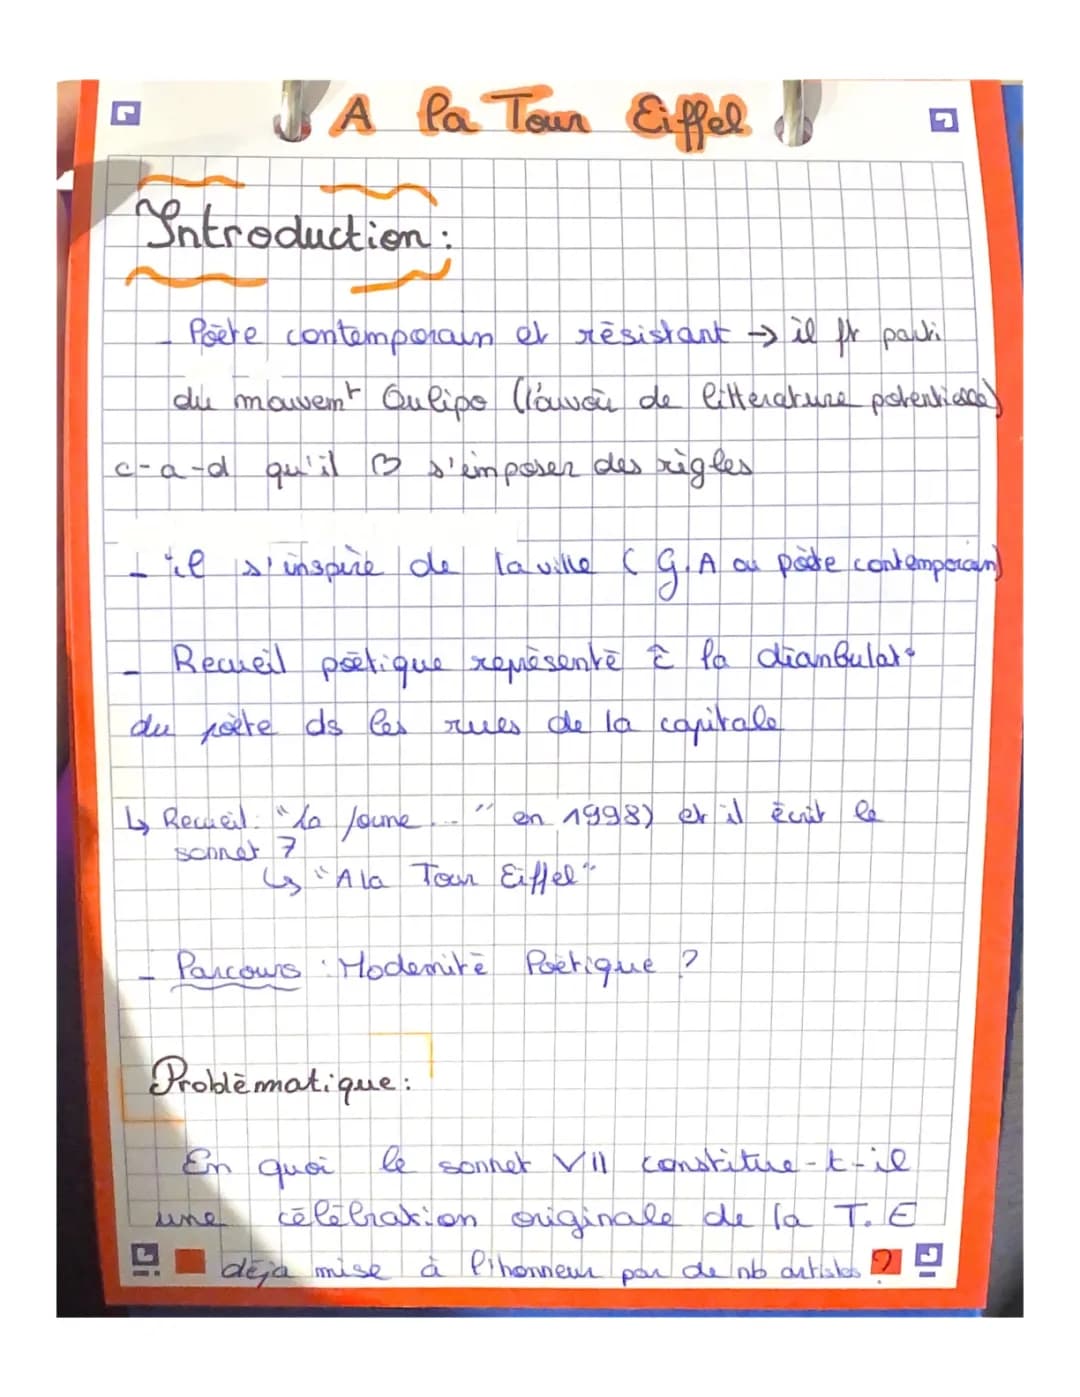 A la Tour Eiffel
Introduction :
- Poète contemporain et résistant → il ft parti
du mouvemt Oulipo (l'avoir de litterature potentielle)
c-a-d qu'il s'imposer des règles
- il s'inspire de la ville ( G.A ou poète contemporain)
- Recueil poëtique représenté à la dianbulat°
du poète ds les rues de la capitale
↳ Recueil : "La forme..." en 1998) et il écrit le
sonnet 7
↳ "A la Tour Eiffel"
- Parcours : Modernité Poëtique ?
Problématique :
En quoi le sonnet VII constitue-t-il
une célébration originale de la T.E
déja mise à l'honneur par de nb artistes ?